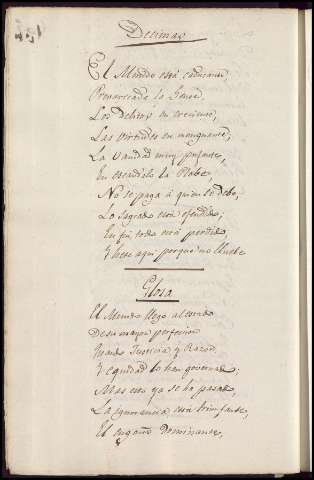 Decimas
El Mundo está
Prevaricada la
Los Delitos en creciente,
Las virtudes en menguante,
La vanidad muy pujante,
En escandalo la Plebe,
No se paga á quien se debe,
Lo sagrado está ofendido;
En fin, todo está perdido
Y hete aqui porque no llueve
Glosa
El Mundo llego al estado
De su mayor perfeccion
Quando Justicia y Razon
Y equidad lo han governado
Mas esto ya se ha pasado,
La ignorancia está triunfante,
El engaño dominante,